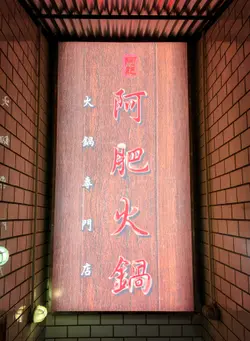 阿肥
阿肥火鍋
火鍋專門店